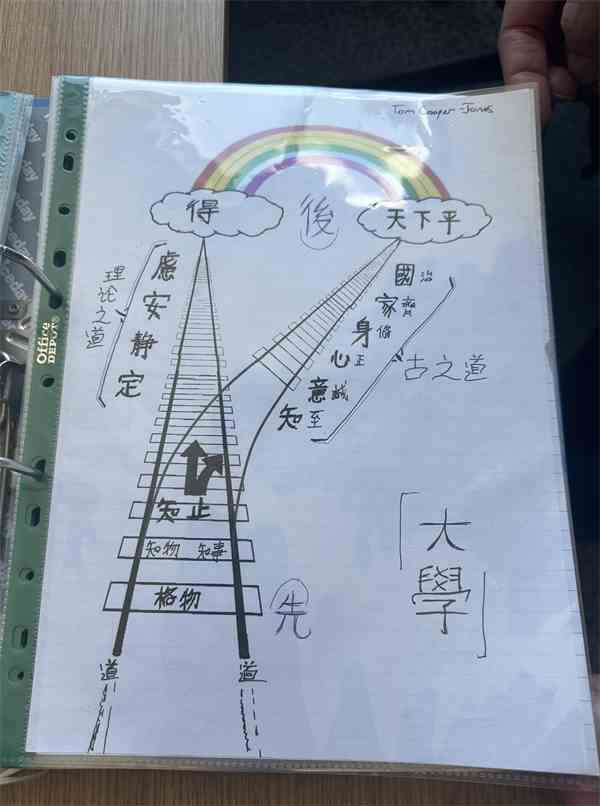 Tom Cooper-Jones
得
後
天下平
理论之道
慮安靜定
國治
家齊
身脩
心正
意誠
知至
古之道
知止
知物 知事
格物
先
道
道
「大學」
Office DEPOT